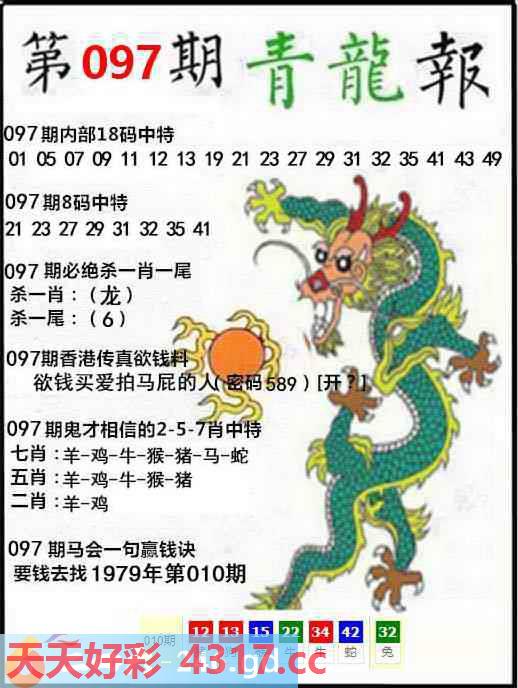 第097期青龍報
097期内部18码中特
01 05 07 09 11 12 13 19 21 23 27 29 31 32 35 41 43 49
097期8码中特
21 23 27 29 31 32 35 41
097期必绝杀一肖一尾
杀一肖：（龙）
杀一尾：（6）
097期香港传真欲钱料
欲钱买爱拍马屁的人(密码589)[开？]
097期鬼才相信的2-5-7肖中特
七肖：羊-鸡-牛-猴-猪-马-蛇
五肖：羊-鸡-牛-猴-猪
二肖：羊-鸡
097期马会一句赢钱诀
要钱去找1979年第010期
010期 12 13 15 22 34 42 32
牛 蛇 兔
天天好彩 4317.cc